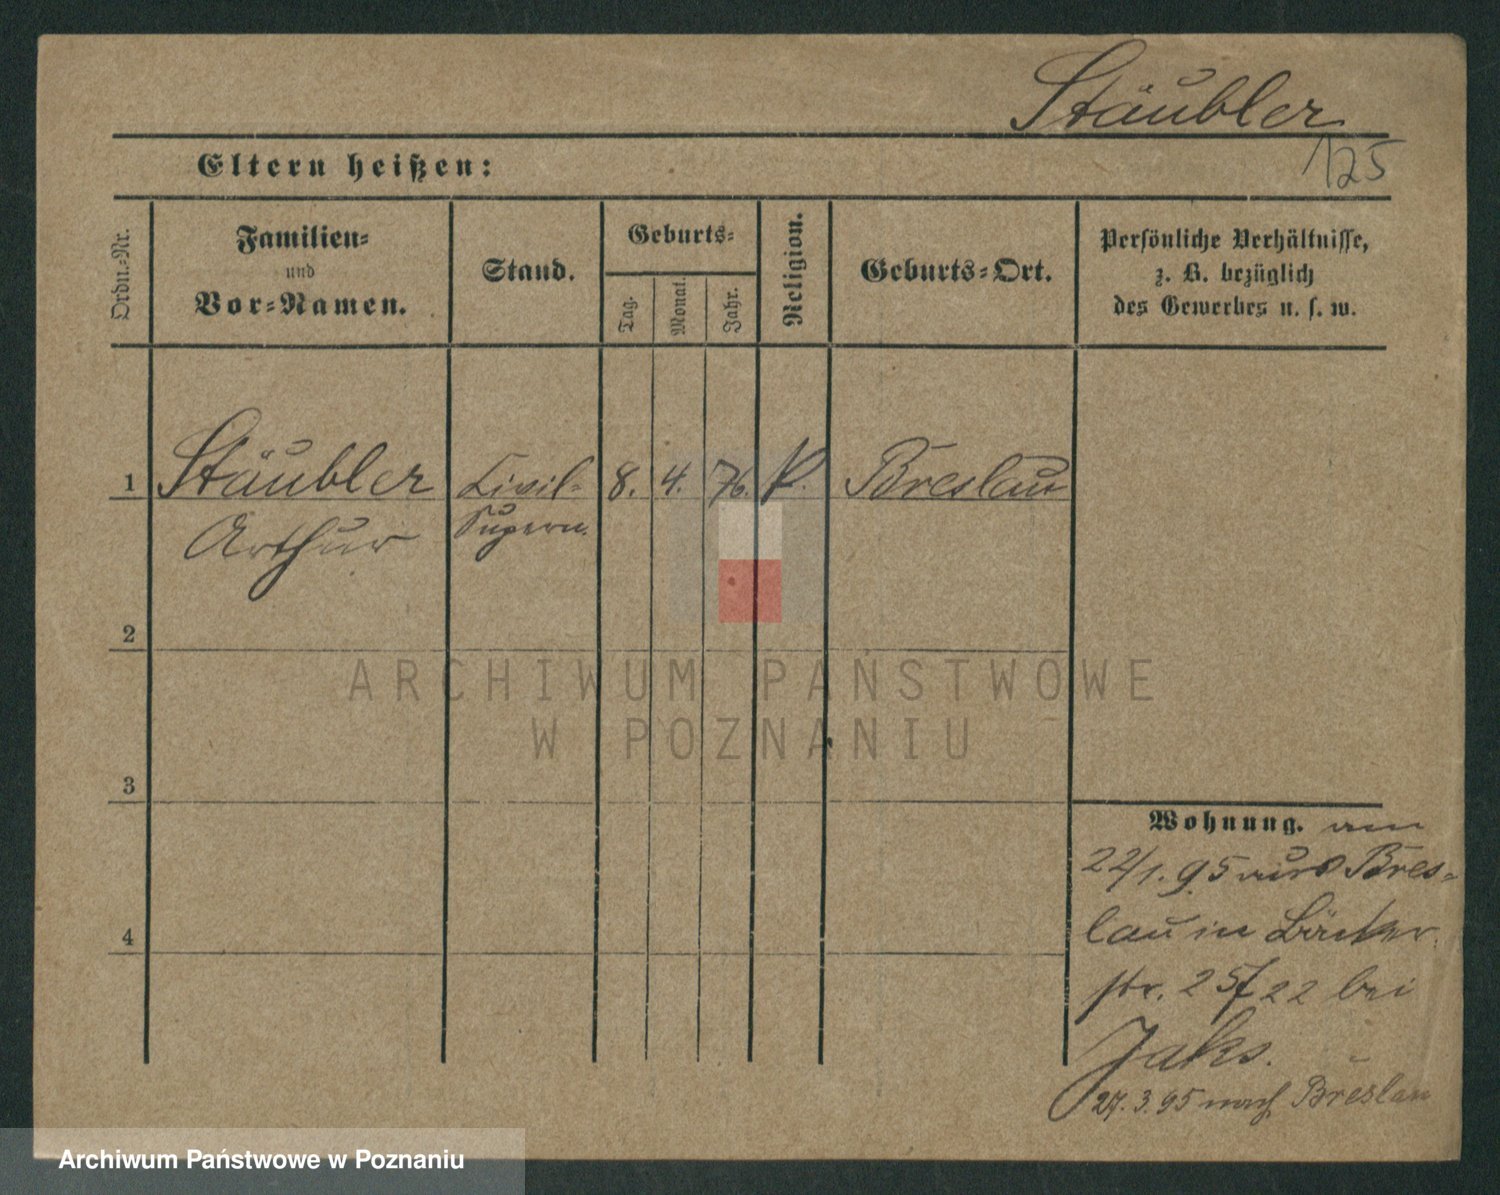 Stäubler
125
Eltern heißen:
Ordn.-Nr.
Familien-
und
Vor-Namen.
Stand.
Geburts-
Tag.
Monat.
Jahr.
Religion.
Geburts-Ort.
Persönliche Verhältnisse,
z. B. bezüglich
des Gewerbes u. s. w.
1 Stäubler Civil- 8. 4. 76. k. Breslau
Arthur Supern.
2
3
4
Wohnung. am
22/1.95 aus Bres-
lau in Bäcker
str. 25/22 bei
Jaks.
27.3.95 nach Breslau
ARCHIWUM PAŃSTWOWE
W POZNANIU
Archiwum Państwowe w Poznaniu